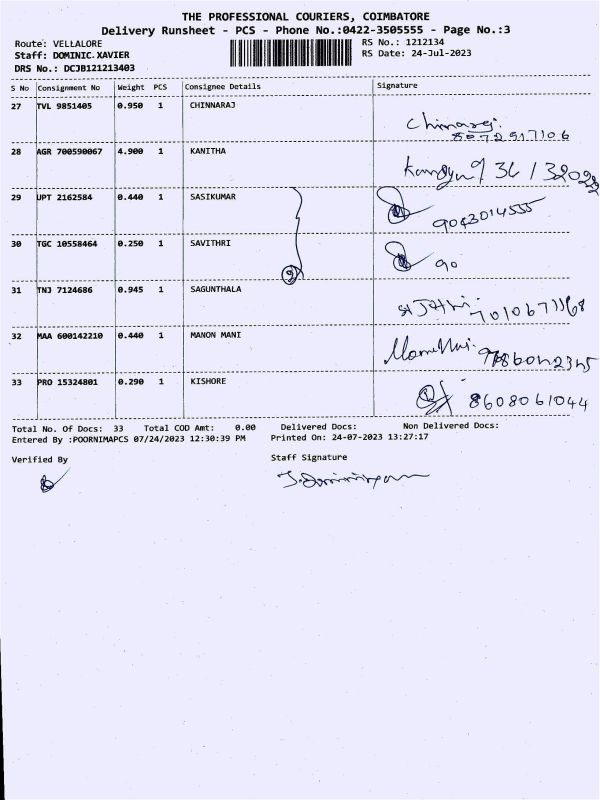 THE PROFESSIONAL COURIERS, COIMBATORE
Delivery Runsheet - PCS - Phone No.:0422-3505555 - Page No.:3
Route: VELLALORE
RS No.: 1212134
Staff: DOMINIC.XAVIER
RS Date: 24-Jul-2023
DRS No.: DCJB121213403
S No Consignment No Weight PCS Consignee Details Signature
27 TVL 9851405 0.950 1 CHINNARAJ
8072517106
28 AGR 700590067 4.900 1 KANITHA
29 UPT 2162584 0.440 1 SASIKUMAR
9043014555
30 TGC 10558464 0.250 1 SAVITHRI
90
31 TNJ 7124686 0.945 1 SAGUNTHALA
32 MAA 600142210 0.440 1 MANON MANI
33 PRO 15324801 0.290 1 KISHORE
8608061044
Total No. Of Docs: 33 Total COD Amt: 0.00 Delivered Docs: Non Delivered Docs:
Entered By :POORNIMAPCS 07/24/2023 12:30:39 PM Printed On: 24-07-2023 13:27:17
Verified By Staff Signature